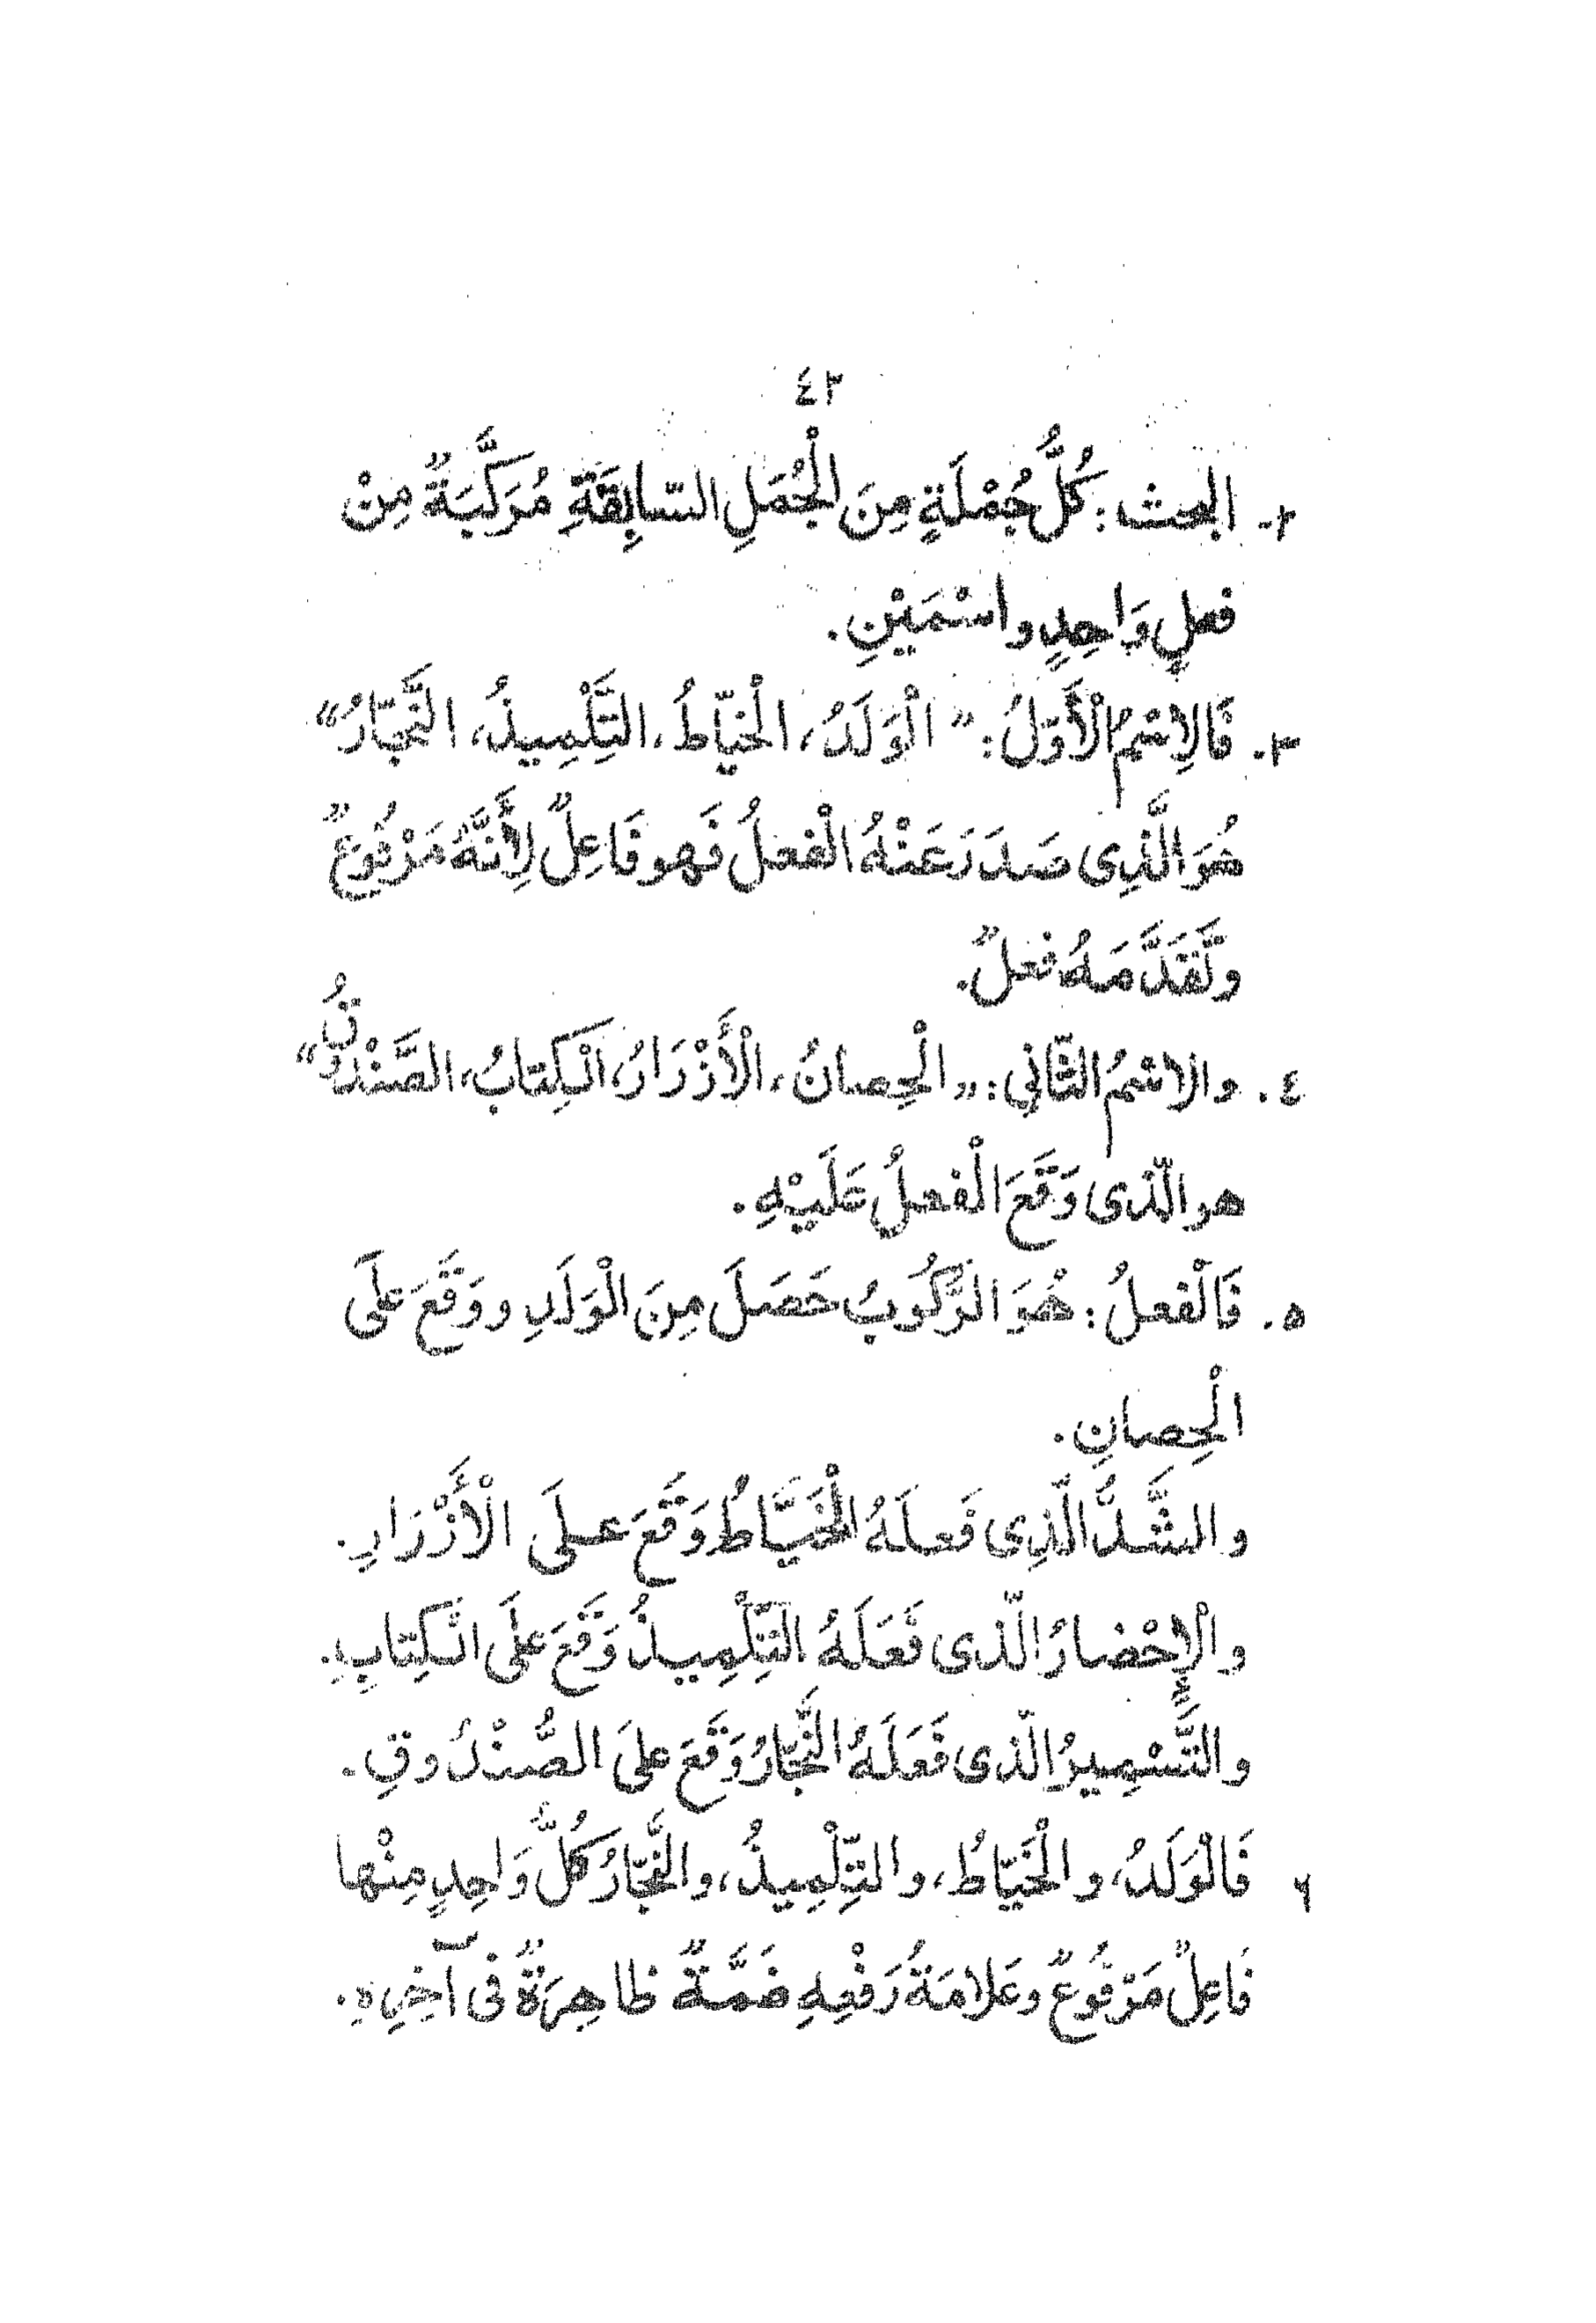 ٤٢
٢- البحث : كُلُّ جُمْلَةٍ مِنَ الْجُمَلِ السّابِقَةِ مُرَكَّبَةٌ مِنْ
فعلٍ وَاحِدٍ واسْمَيْنِ .
٣- فَالِاسْمُ الْأَوَّلُ : " الْوَلَدُ ، الْخيّاطُ ، التِّلْمِيذُ ، النَّجّارُ "
هُوَ الَّذِى صَدَرَ عَنْهُ الْفعلُ فَهو فَاعِلٌ لِأَنَّهُ مَرْفُوعٌ
وتَقَدَّمَهُ فعلٌ .
٤ . والاسْمُ الثّانِي : " الْحِصانُ ، الْأَزْرَارُ ، الْكِتابُ ، الصَّنْدوقُ "
هو الّذى وَقَعَ الْفعلُ عَلَيْهِ .
٥ . فَالْفعلُ : هُوَ الرُّكُوبُ حَصَلَ مِنَ الْوَلَدِ ووَقَعَ علَى
الْحِصانِ .
والشَّدُّ الّذِى فَعلَهُ الْخَيَّاطُ وَقَعَ علَى الْأَزْرَارِ .
والْإِحْضارُ الّذى فَعَلَهُ التِّلْمِيذُ وَقَعَ علَى الْكِتابِ .
والتَّسْمِيرُ الّذى فَعَلَهُ النَّجّارُ وَقَعَ علىَ الصُّنْدُوقِ .
٦ فَالْوَلَدُ ، والْخَيّاطُ ، والتِّلْمِيذُ ، والنَّجّارُ كُلُّ وَاحِدٍ مِنْها
فَاعِلٌ مَرْفُوعٌ وعَلامَةُ رَفْعِهِ ضَمَّةٌ ظاهِرَةٌ فى آخِرِهِ .